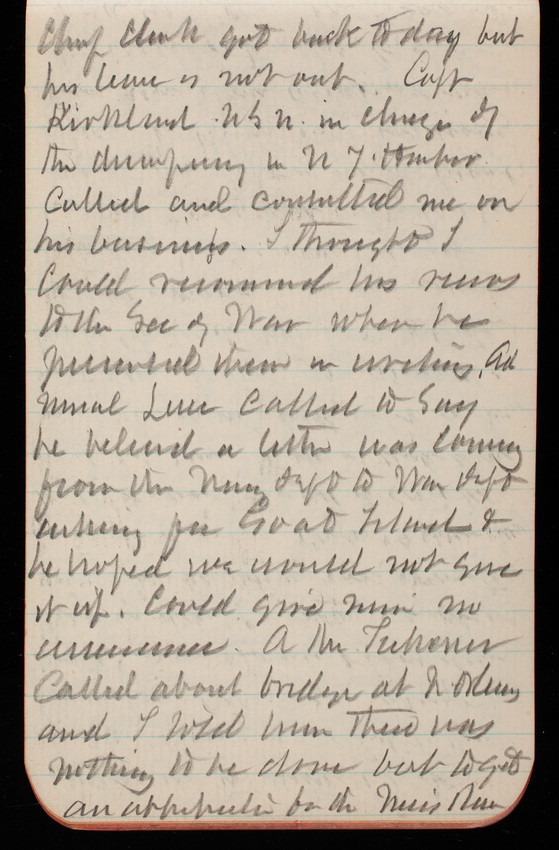 Chief Clerk got back today but
his leave is not out. Capt
Kirkland U S N. in charge of
the dumping in N Y. Harbor
Called and consulted me on
his business. I thought I
Could recommend his views
to the Sec of War when he
presented them in writing. Ad
miral Luce Called to Say
he believed a letter was coming
from the Navy Dept to War Dept
asking for Goat Island &
he hoped we would not give
it up. Could give him no
assurance. A Mr
Called about bridge at N. Orleans
and I told him there was
nothing to be done but to get
an for the Miss River